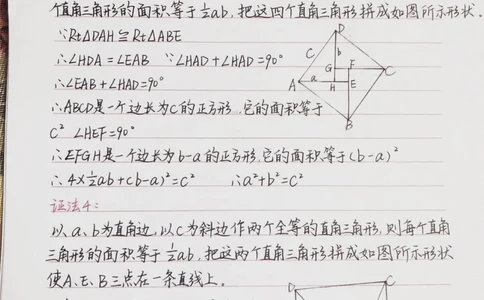 值角三角形的面积等于½ab，把这四个直角三角形拼成如图所示形状.
∵Rt△DAH≌Rt△ABE
∴∠HDA=∠EAB ∵∠HAD+∠HAD=90°
∴∠EAB+∠HAD=90°
∴ABCD是一个边长为C的正方形，它的面积等于
C² ∠HEF=90°
∴EFGH是一个边长为b-a的正方形.它的面积等于(b-a)²
∴4×½ab+(b-a)²=c² ∴a²+b²=c²
证法4:
以a、b为直角边，以C为斜边作两个全等的直角三角形，则每个直角
三角形的面积等于½ab，把这两个直角三角形拼成如图所示形状
使A、E、B三点在一条直线上.
D
C
b
G
F
C
A
a
H
E
B
D
C